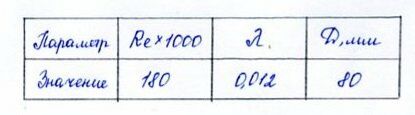 Параметр Re×1000 λ. D, мм
Значение 180 0,012 80